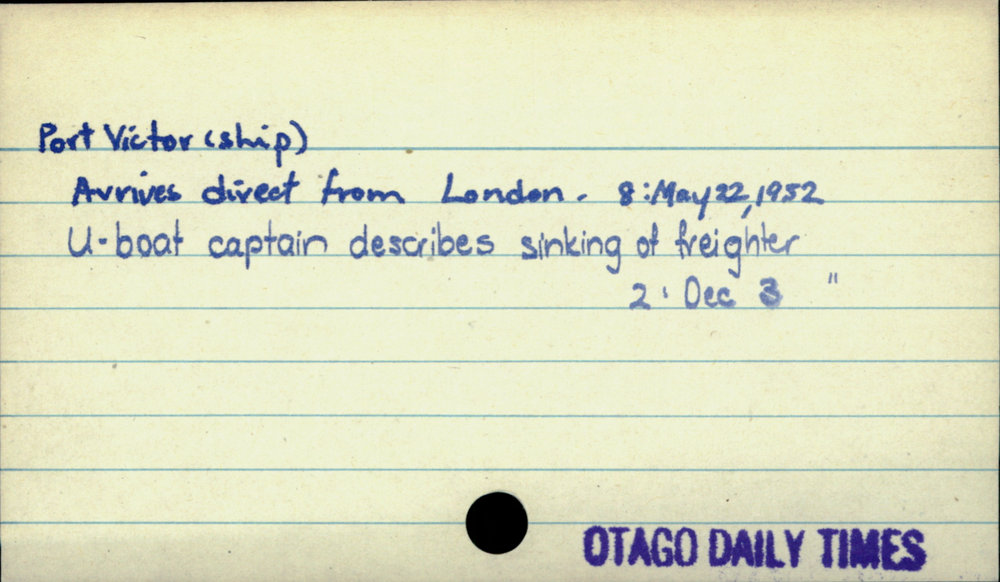 Port Victor (ship)
Arrives direct from London. 8:May 22, 1952
U-boat captain describes sinking of freighter
2: Dec 3 "
OTAGO DAILY TIMES